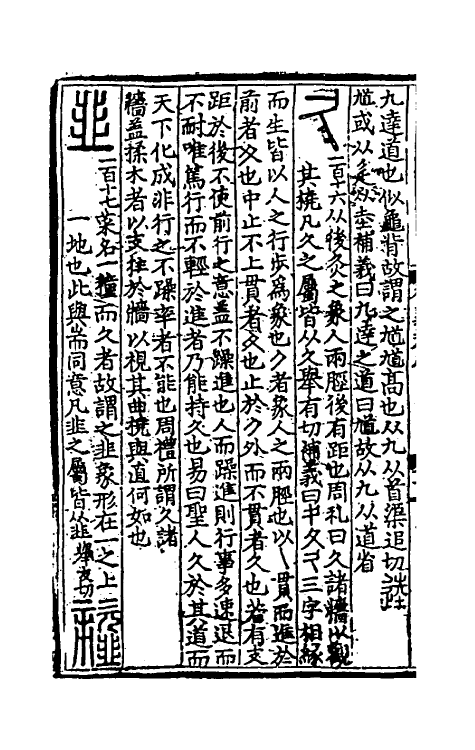 九達道也似龜背故謂之馗馗高也从九从首渠追切
馗或从坴補義曰九達之道曰馗故从九从道省
二百十六从後灸之象人兩脛後有距也周礼曰久諸牆以觀
其橈凡久之屬皆从久舉有切補義曰夂夊久三字相緣
而生皆以人之行步為象也勹者象人之兩脛也以乀貫而進於
前者夊也中止不上貫者夂也止於勹外而不貫者久也若有支
距於後不使前行之意蓋不躁進也人而躁進則行事多速退而
不耐唯篤行而不輕於進者乃能持久也易曰聖人久於其道而
天下化成非行之不躁率者不能也周禮所謂久諸
牆蓋揉木者以支柱於牆以視其曲橈與直何如也
二百十七菜名一穜而久者故謂之韭象形在一之上
一地也此與耑同意凡韭之屬皆从韭舉友切